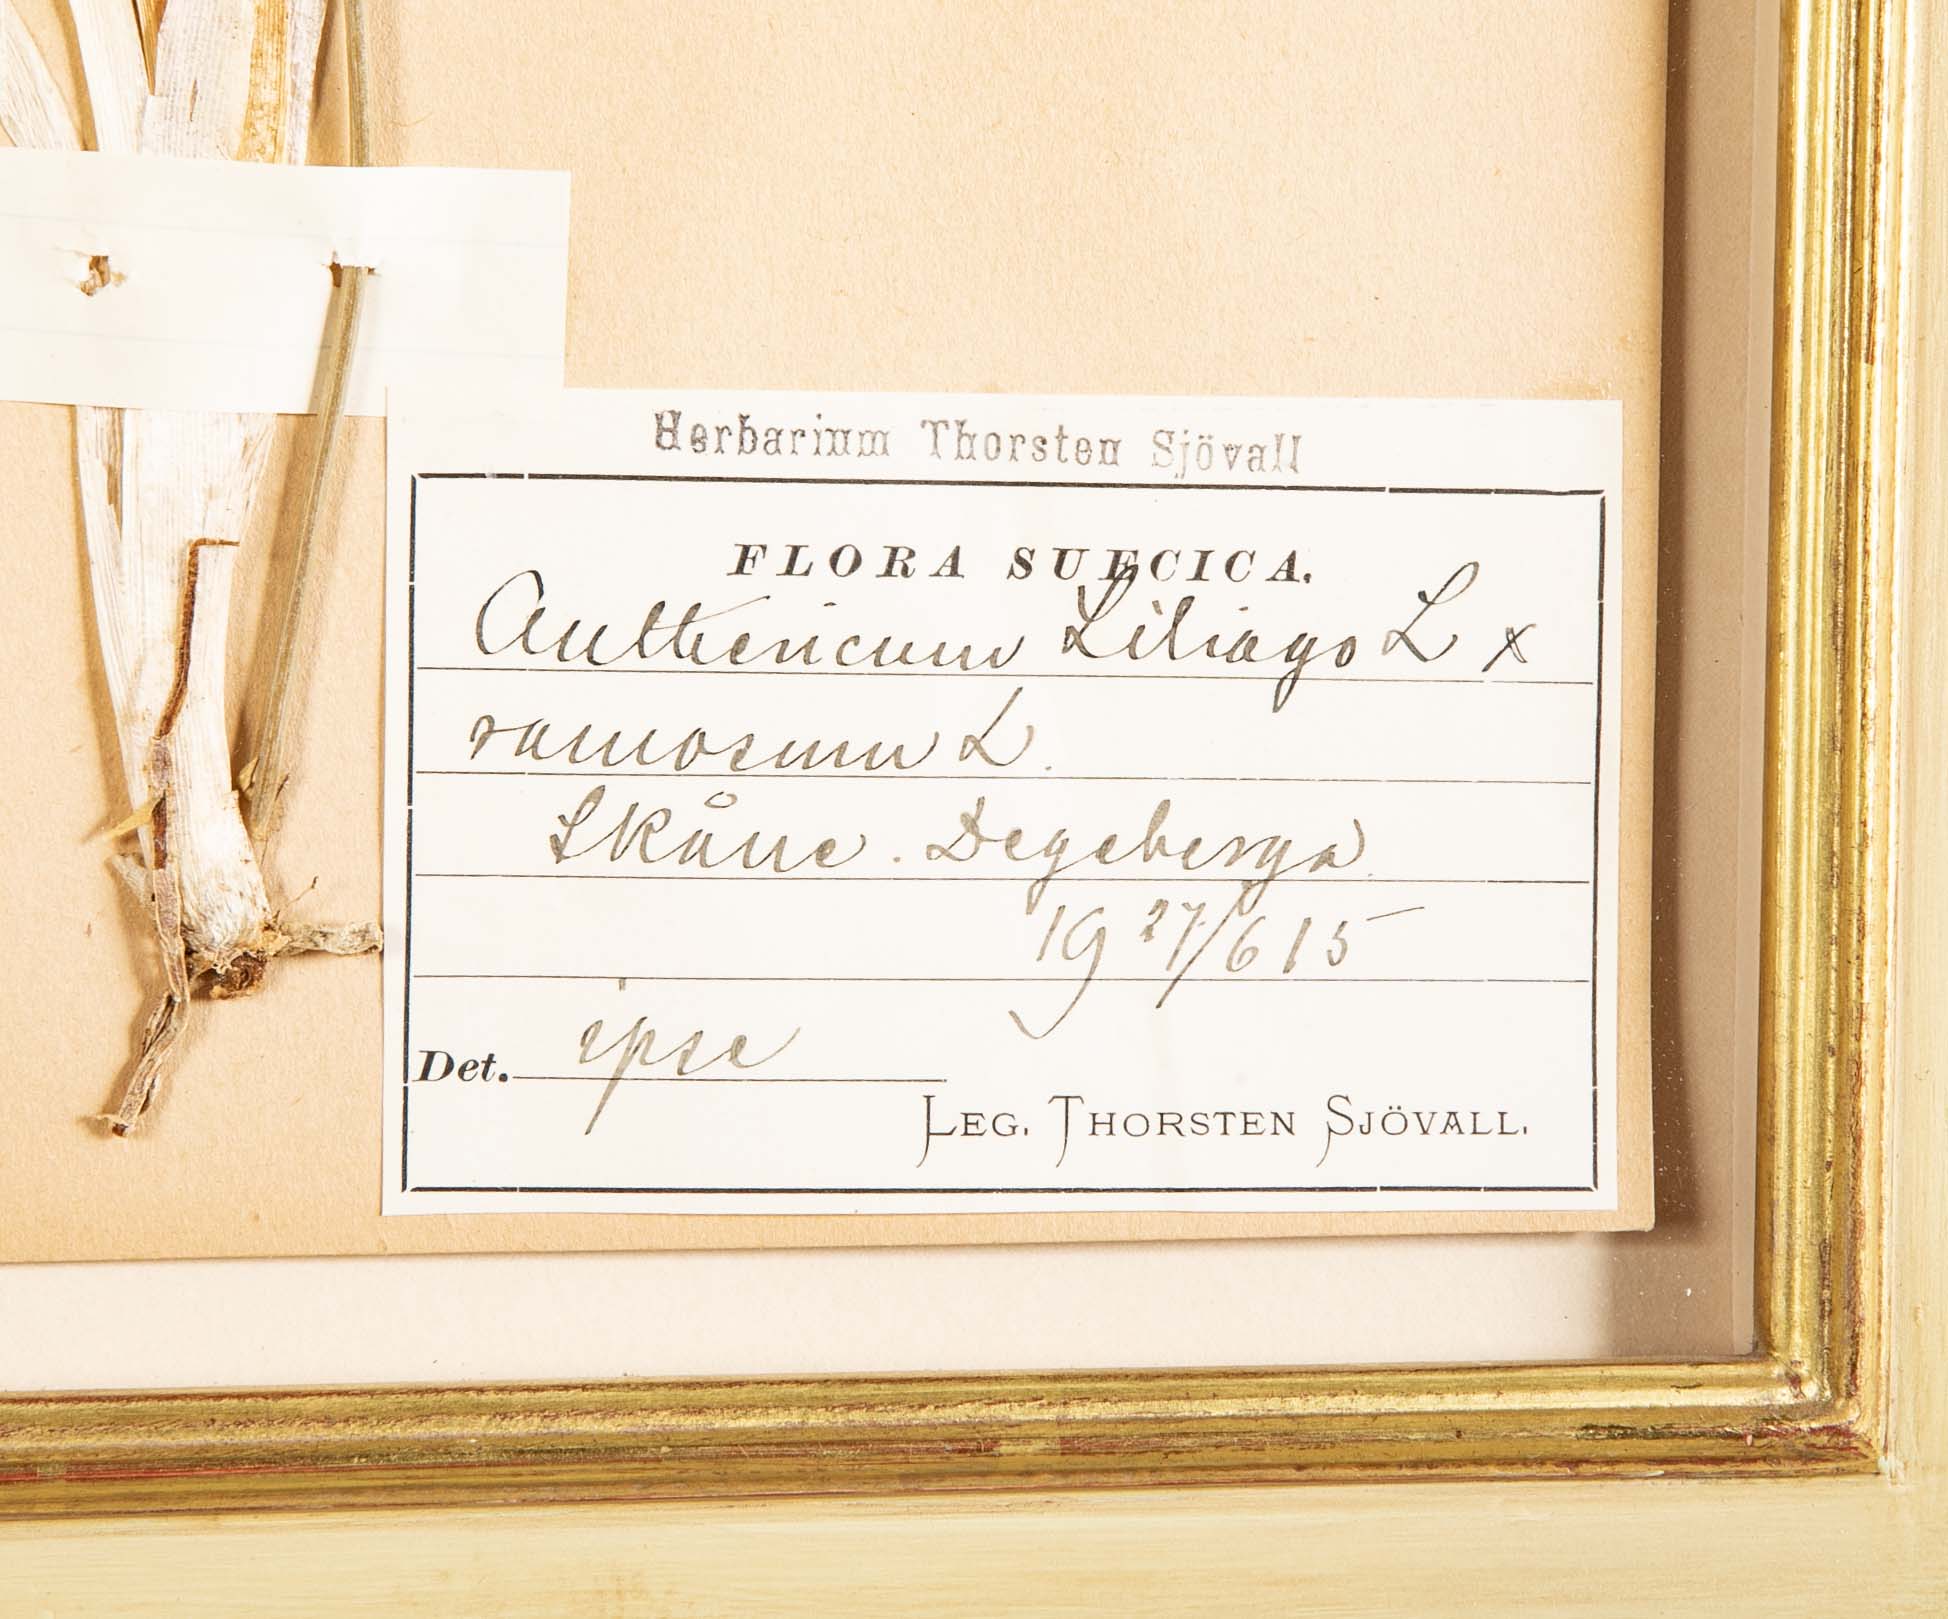 Herbarium Thorsten Sjövall
FLORA SUECICA.
Anthericum Liliago L x
ramosum L.
Skåne. Degeberga
19 27/6 15
Det. ipse
LEG. THORSTEN SJÖVALL.